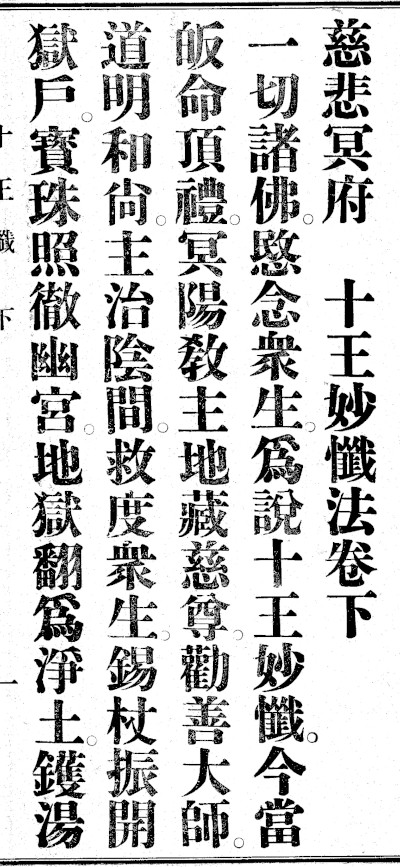 慈悲冥府　十王妙懺法卷下
一切諸佛。愍念衆生。爲說十王妙懺。今當
皈命頂禮。冥陽教主地藏慈尊。勸善大師。
道明和尙。主治陰間。救度衆生。錫杖振開
獄戶。寳珠照徹幽宮。地獄翻爲淨土。鑊湯
十王懺下　一